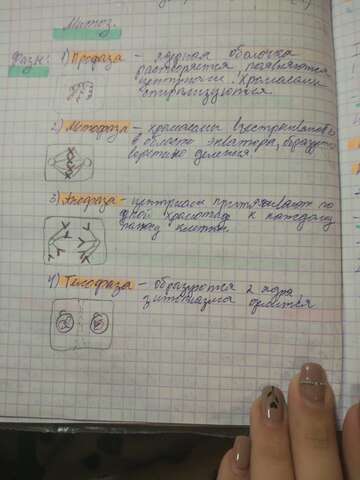 Митоз.
Фазы: 1) Профаза - ядерная оболочка
растворяется появляются
центриоли. Хромасомы
спирализуются
2) Метофаза - хромасомы выстраиваются
в области экватора, образуется
веретено деления
3) Анафаза - центриоли притягивают по
одной к каждому
клетки.
4) Телофаза - образуются 2 ядра,
цитоплазма делится